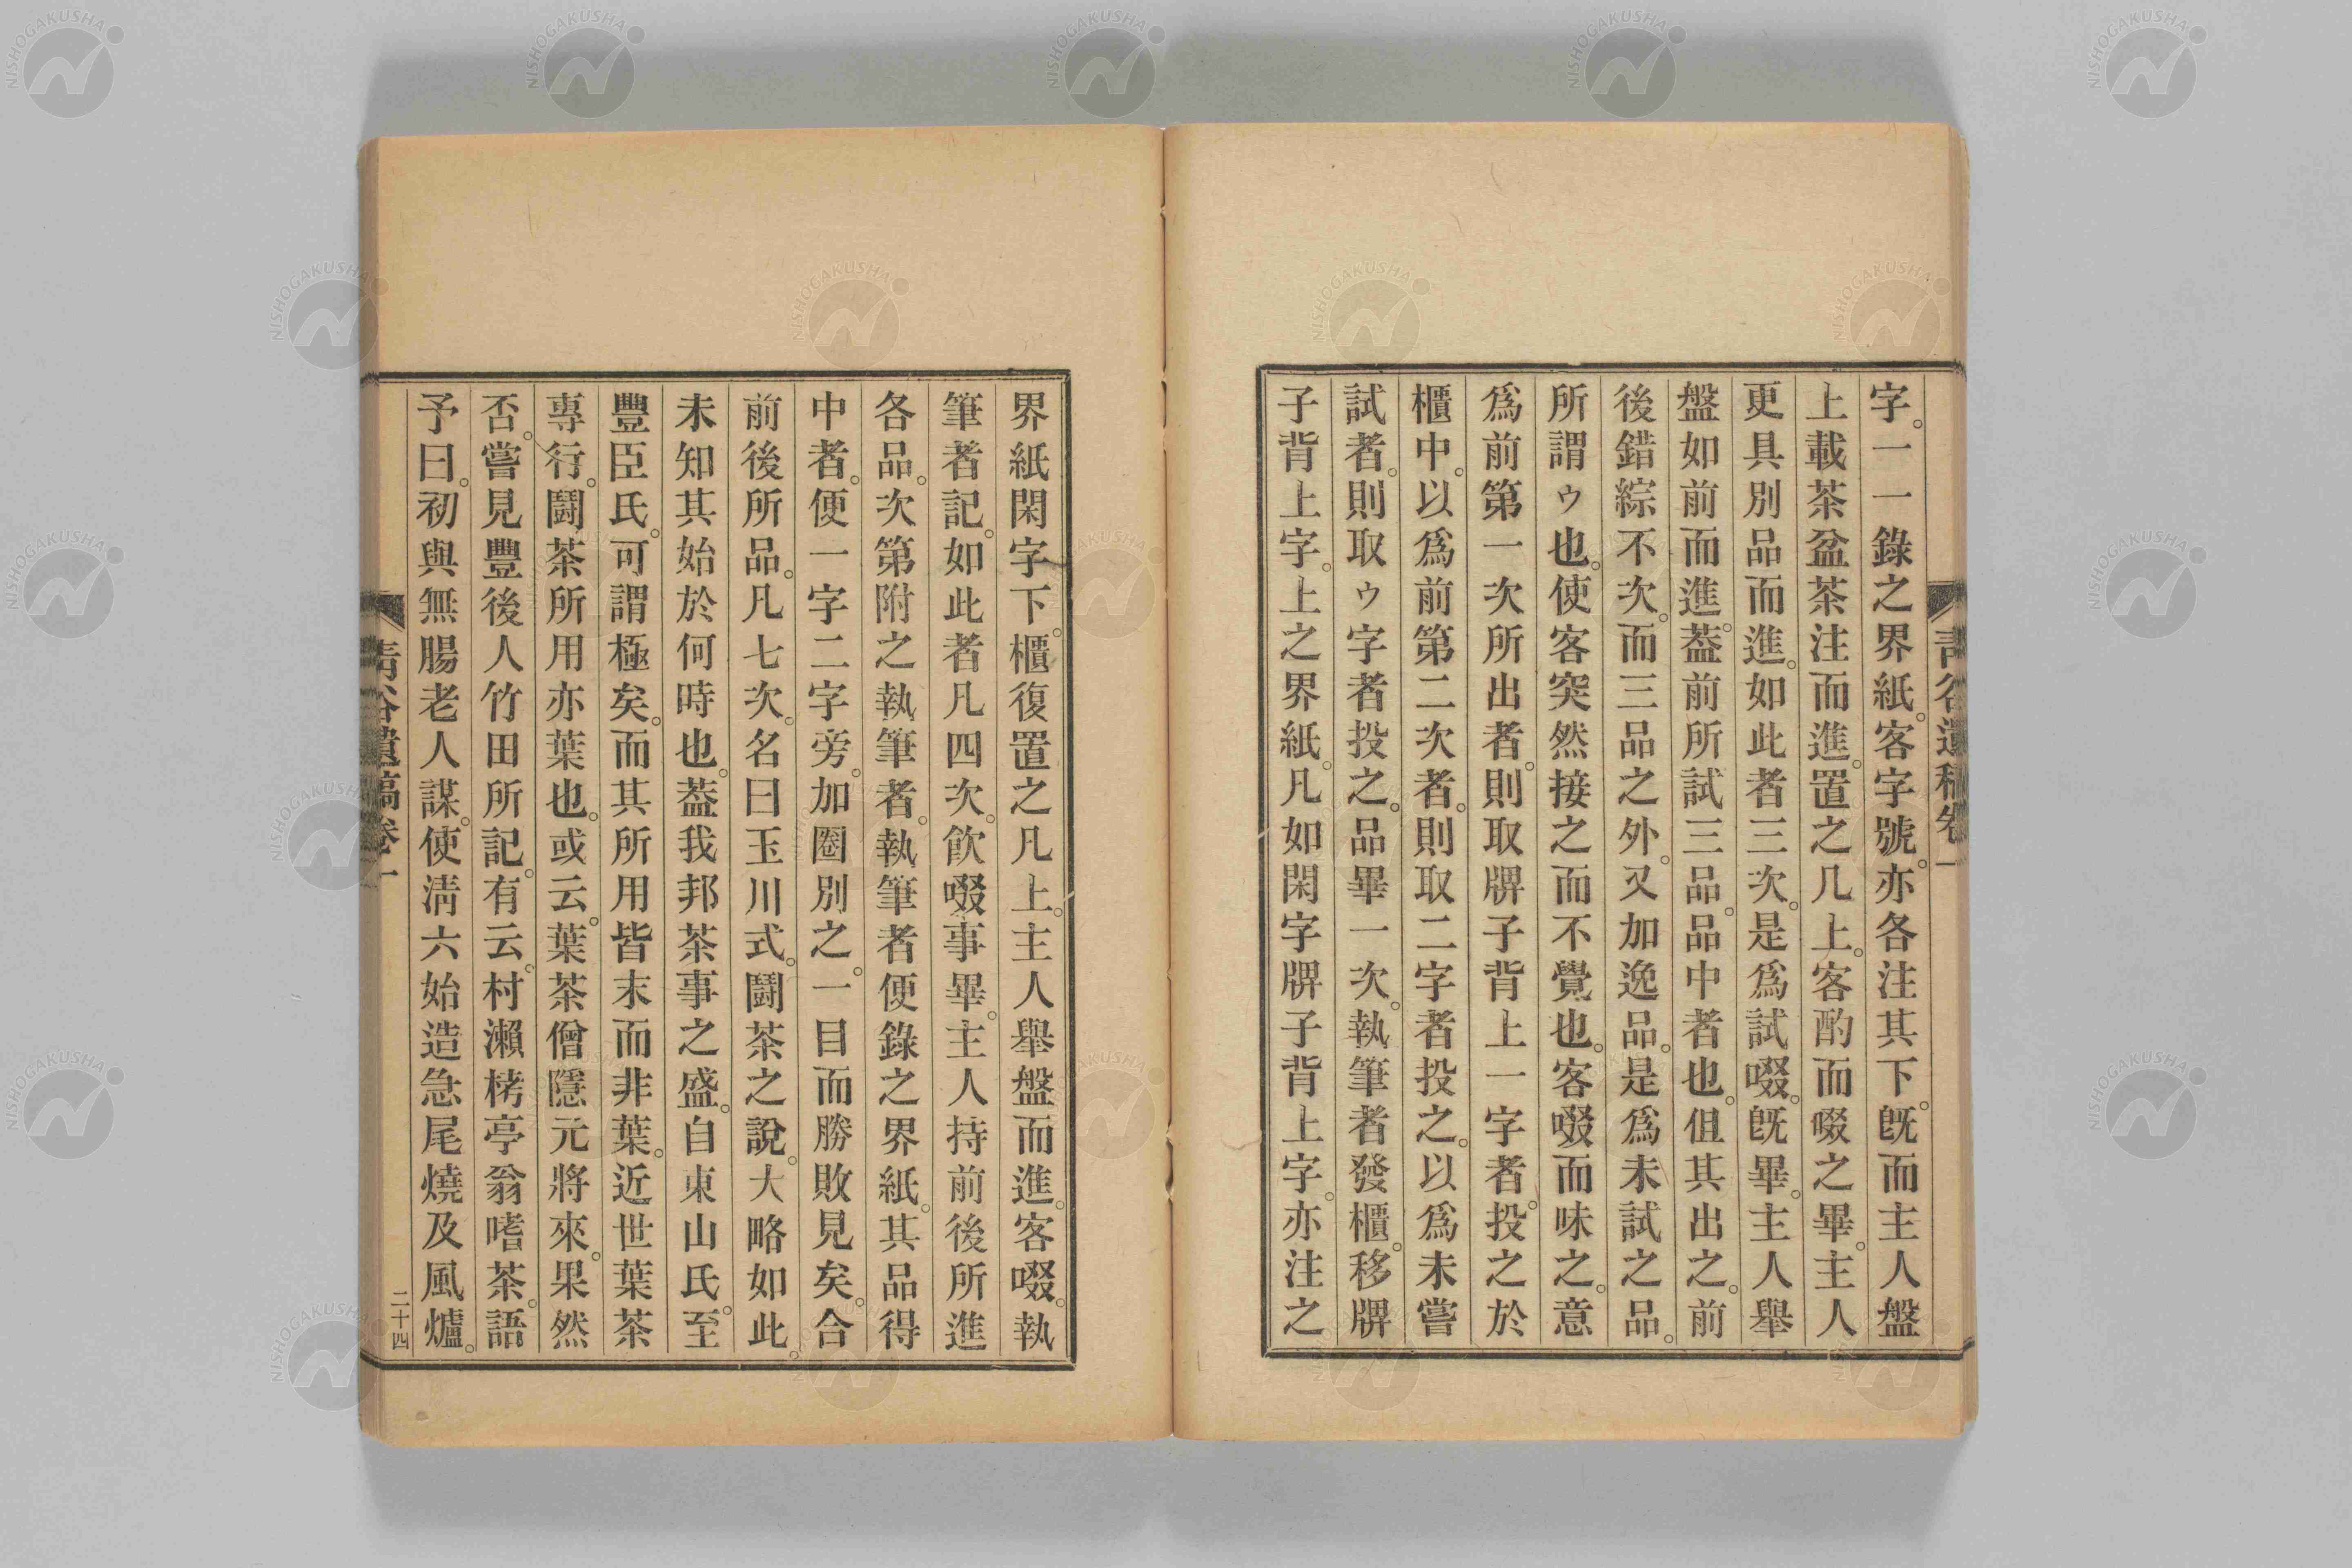 字。一一錄之界紙。客字號。亦各注其下。旣而主人盤
上載茶盆茶注而進。置之几上。客酌而啜之畢。主人
更具別品而進。如此者三次。是爲試啜。旣畢。主人舉
盤如前而進。葢前所試三品。品中者也。伹其出之。前
後錯綜不次。而三品之外。又加逸品。是爲未試之品。
所謂ゥ也。使客突然接之而不覺也。客啜而味之。意
爲前第一次所出者。則取牌子背上一字者。投之於
櫃中。以爲前第二次者。則取二字者投之。以爲未嘗
試者。則取ゥ字者投之。品畢一次。執筆者發櫃。移牌
子背上字。上之界紙。凡如閑字牌子背上字。亦注之
界紙閑字下。櫃復置之凡上。主人舉盤而進。客啜。執
筆者記。如此者凡四次。飮啜事畢。主人持前後所進
各品。次第附之執筆者。執筆者便錄之界紙。其品得
中者。便一字二字旁。加圈別之。一目而勝敗見矣。合
前後所品。凡七次。名曰玉川式。鬪茶之說。大略如此。
未知其始於何時也。葢我邦茶事之盛。自東山氏。至
豐臣氏。可謂極矣。而其所用皆末而非葉。近世葉茶
專行。鬪茶所用亦葉也。或云。葉茶僧隱元將來。果然
否。嘗見豐後人竹田所記。有云。村瀨栲亭翁嗜茶。語
予曰。初與無腸老人謀。使淸六始造急尾燒及風爐。
二十四
NISHOGAKUSHA